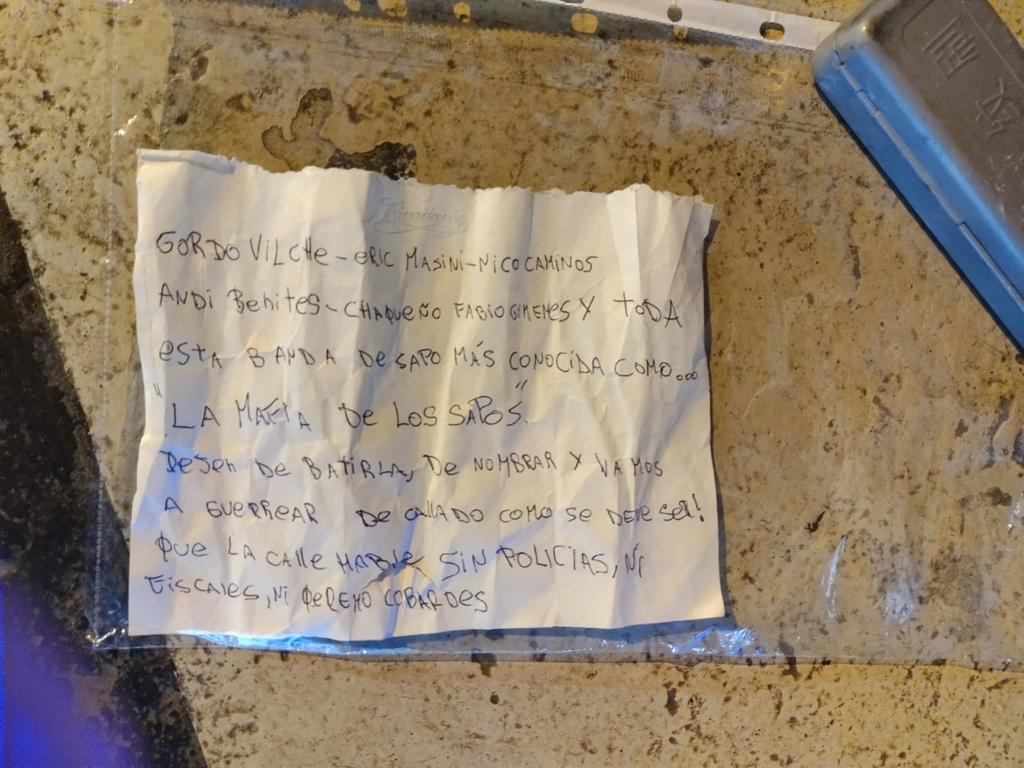 Rivadavia
GORDO VILCHE - ERIC MASINI - NICO CAMINOS
ANDI BENITES - CHAQUEÑO FABIO GIMENES Y TODA
ESTA BANDA DE SAPO MÁS CONOCIDA COMO...
"LA MAFIA DE LOS SAPOS".
DEJEN DE BATIRLA, DE NOMBRAR Y VAMOS
A GUERREAR DE CALLADO COMO SE DEVE SER!
QUE LA CALLE HABLE SIN POLICIAS, NI
FISCALES, NI QEREMO COBARDES